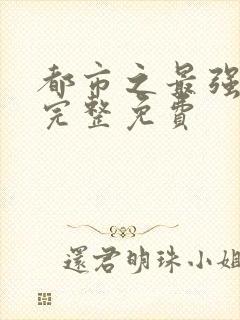 都市之最强
完整免费
還君明珠小姐